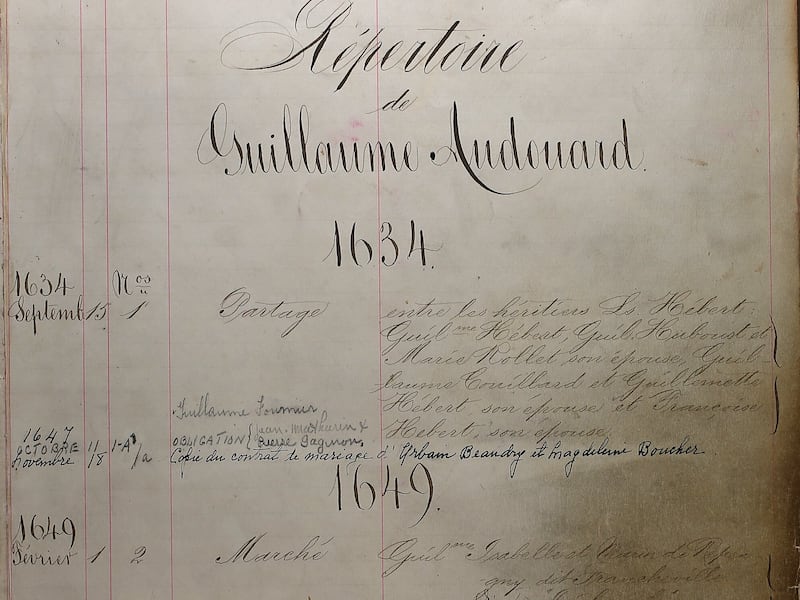 Répertoire
de
Guillaume Audouard.
1634.
1634 Nos
Septemb 15 1 Partage entre les héritiers Ls. Hébert:
Guilme Hébert, Guil. Huboust et
Marie Rollet son épouse, Guil-
laume Couillard et Guillemette
Guillaume Fournier Hébert son épouse et Francoise
1647 Jean, Mathurin & Hébert, son épouse.
OCTOBRE 11 1-A OBLIGATION Pierre Gagnon.
Novembre 18 1a Copie du contrat de mariage d'Urbain Beaudry et Magdeleine Boucher
1649.
1649
Février 1 2 Marché Guilme Isabelle et
gny dit Francheville